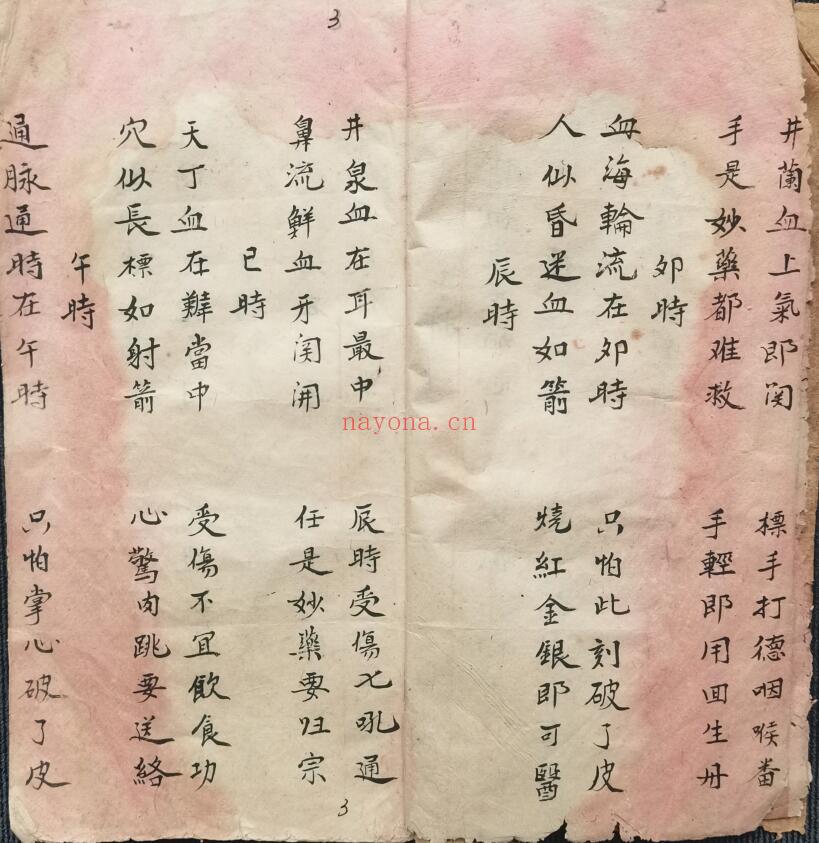 3
井蘭血上氣即関 標手打德咽喉畨
手是妙藥都难救 手輕即用回生丹
夘時
血海輪流在夘時 只怕此刻破了皮
人似昏迷血如箭 燒紅金銀即可醫
辰時
井泉血在耳最中 辰時受傷七吼通
鼻流鮮血牙関開 任是妙藥要归宗
巳時
天丁血在 當中 受傷不宜飲食功
穴似長標如射箭 心驚肉跳要送絡
午時
通脉通時在午時 只怕掌心破了皮
3
nayona.cn